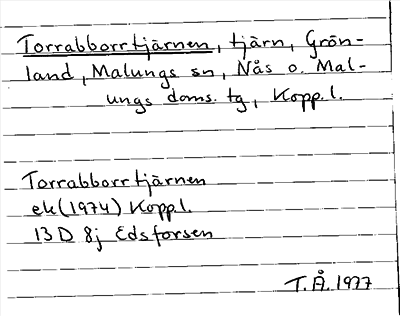 Torrabborrtjärnen, tjärn, Grön-
land, Malungs sn, Nås o. Mal-
ungs doms. tg, Kopp.l.
Torrabborrtjärnen
ek (1974) Kopp.l.
13 D 8j Edsforsen
T.Å. 1977